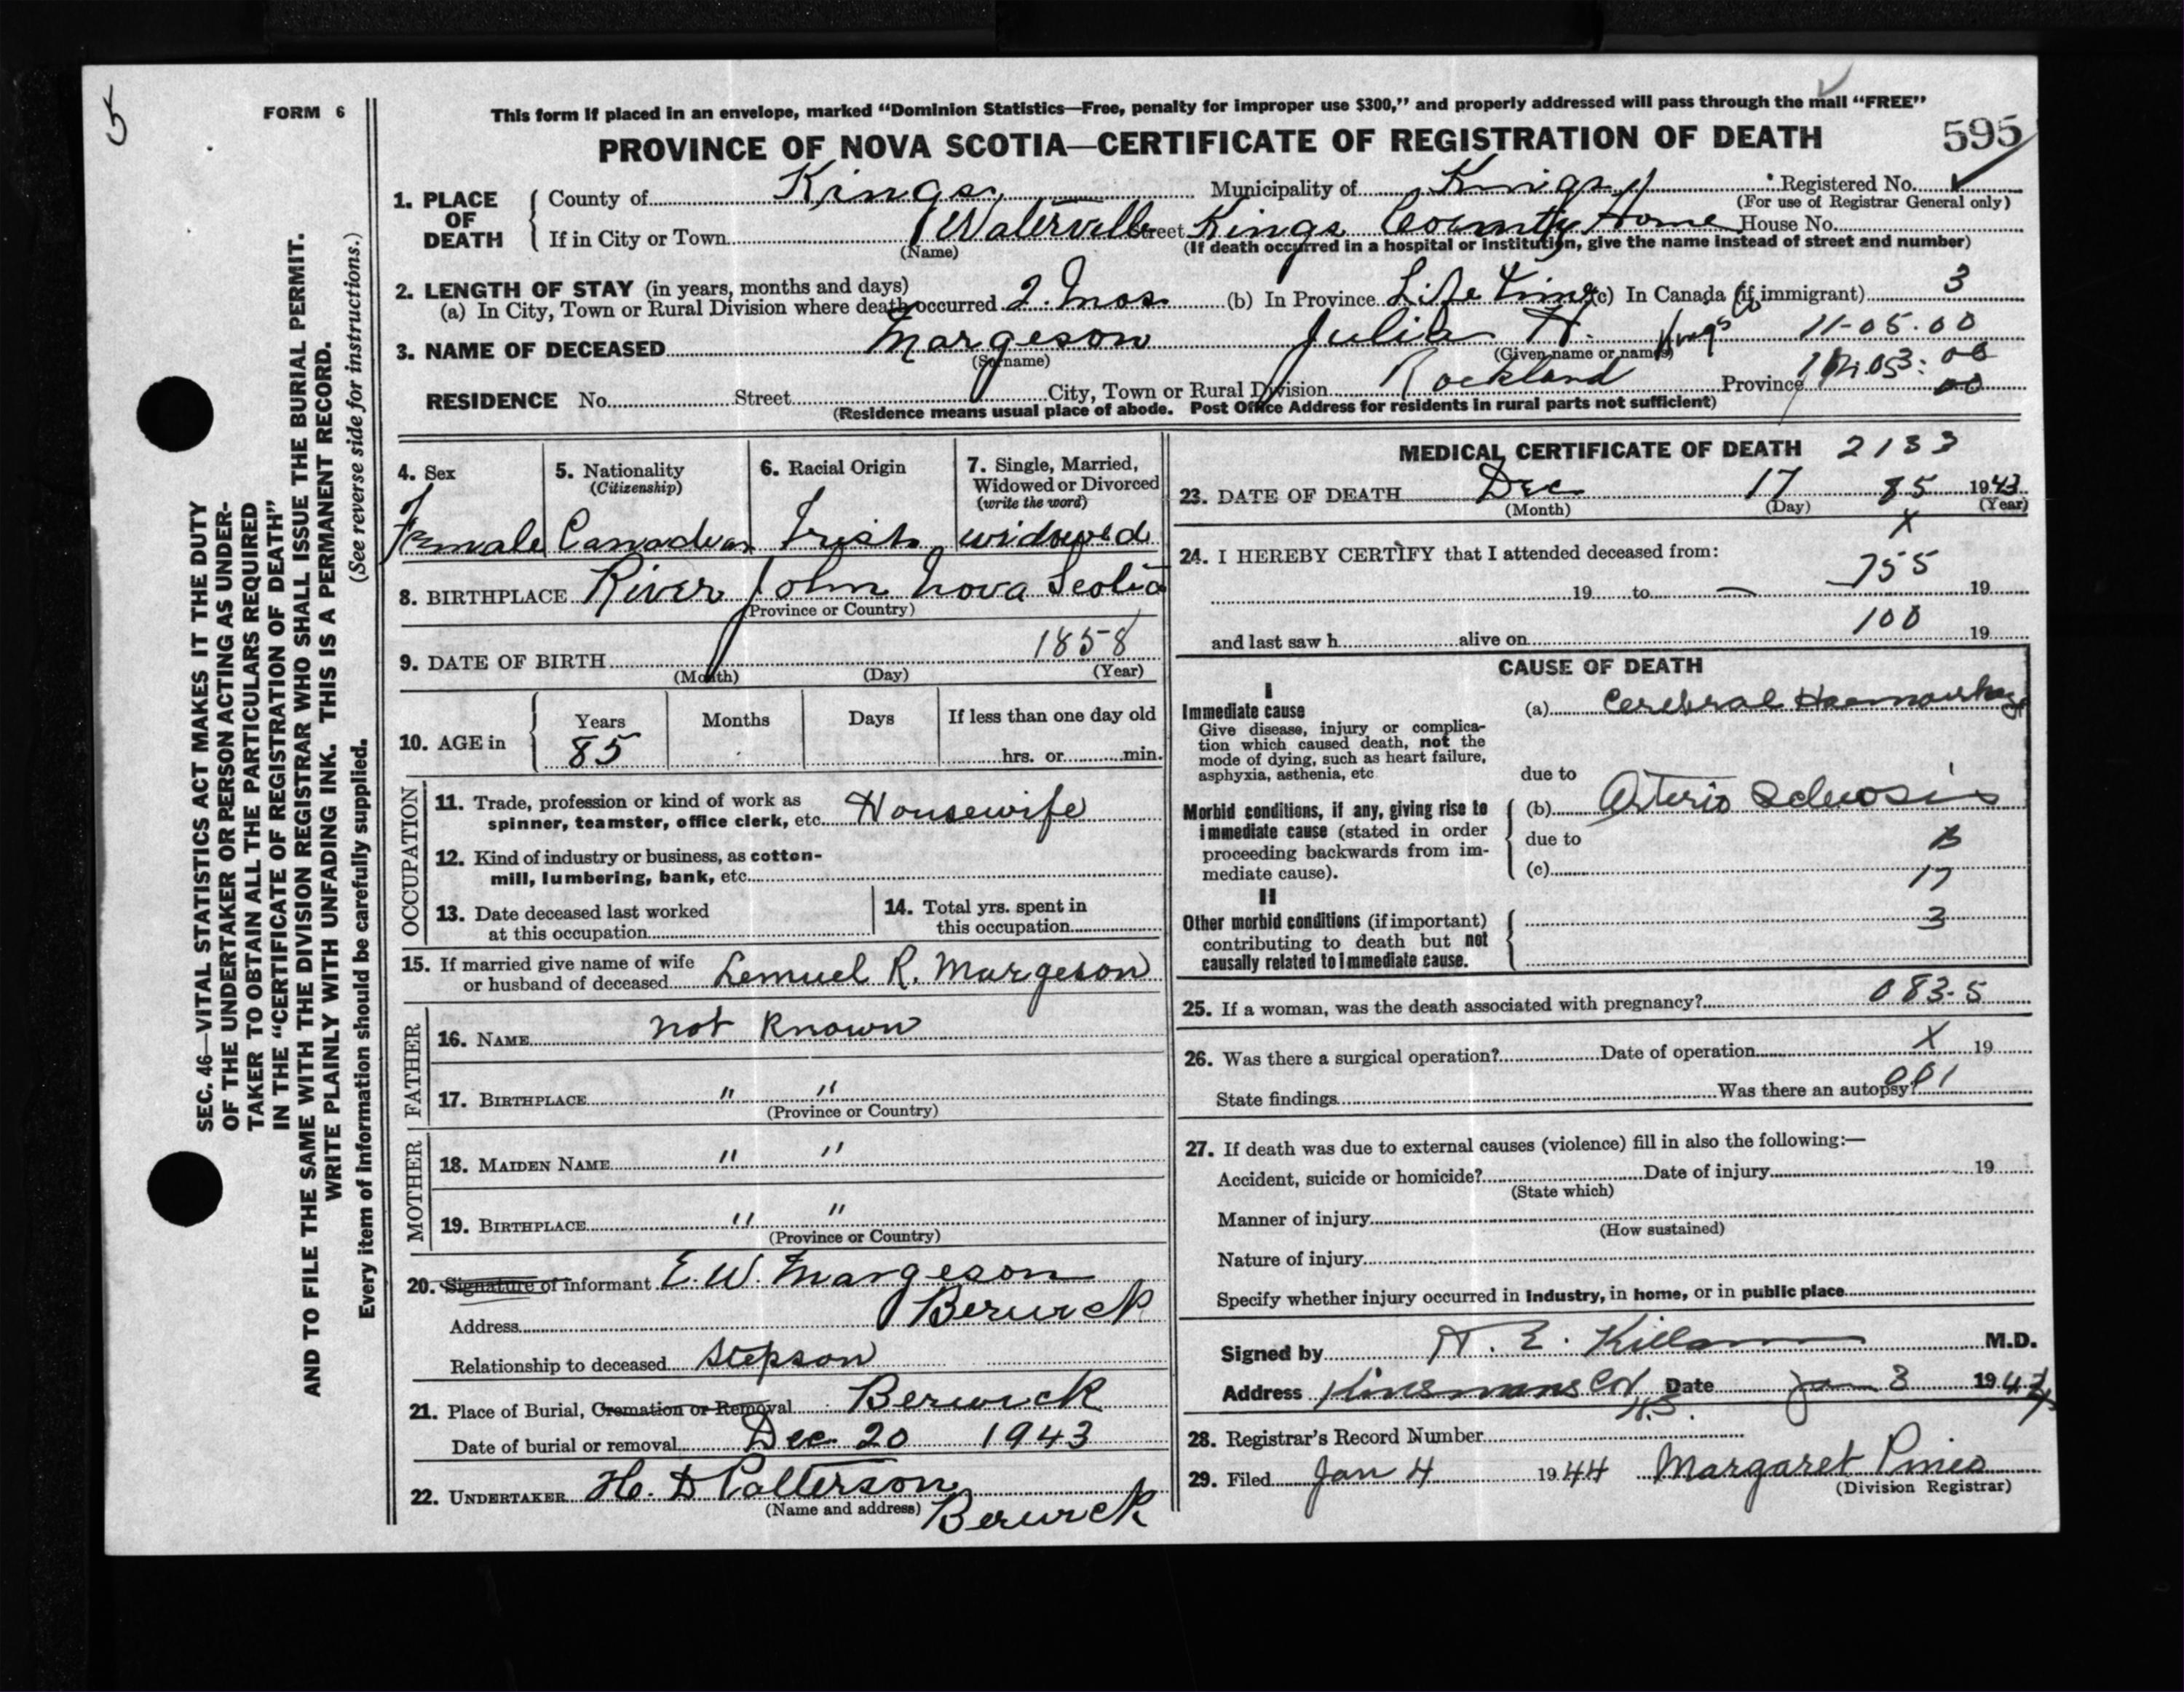 5
FORM 6
This form if placed in an envelope, marked “Dominion Statistics—Free, penalty for improper use $300,” and properly addressed will pass through the mail “FREE”
PROVINCE OF NOVA SCOTIA—CERTIFICATE OF REGISTRATION OF DEATH
595
SEC. 46—VITAL STATISTICS ACT MAKES IT THE DUTY
OF THE UNDERTAKER OR PERSON ACTING AS UNDER-
TAKER TO OBTAIN ALL THE PARTICULARS REQUIRED
IN THE “CERTIFICATE OF REGISTRATION OF DEATH”
AND TO FILE THE SAME WITH THE DIVISION REGISTRAR WHO SHALL ISSUE THE BURIAL PERMIT.
WRITE PLAINLY WITH UNFADING INK. THIS IS A PERMANENT RECORD.
Every item of information should be carefully supplied. (See reverse side for instructions.)
1. PLACE OF DEATH
County of Kings Municipality of Kings Registered No.
(For use of Registrar General only)
If in City or Town Waterville Street Kings County Home House No.
(Name) (If death occurred in a hospital or institution, give the name instead of street and number)
2. LENGTH OF STAY (in years, months and days)
(a) In City, Town or Rural Division where death occurred 2. mos. (b) In Province Life time (c) In Canada (if immigrant) 3
3. NAME OF DECEASED Margeson Julia H. Kings Co 11-05.00
(Surname) (Given name or names)
RESIDENCE No. Street City, Town or Rural Division Rockland Province
(Residence means usual place of abode. Post Office Address for residents in rural parts not sufficient)
4. Sex
Female
5. Nationality
(Citizenship)
Canadian
6. Racial Origin
Irish
7. Single, Married,
Widowed or Divorced
(write the word)
widowed
8. BIRTHPLACE River John Nova Scotia
(Province or Country)
9. DATE OF BIRTH 1858
(Month) (Day) (Year)
10. AGE in Years Months Days If less than one day old
85 hrs. or min.
OCCUPATION
11. Trade, profession or kind of work as
spinner, teamster, office clerk, etc. Housewife
12. Kind of industry or business, as cotton-
mill, lumbering, bank, etc.
13. Date deceased last worked
at this occupation
14. Total yrs. spent in
this occupation
15. If married give name of wife
or husband of deceased Lemuel R. Margeson
FATHER
16. NAME not Known
17. BIRTHPLACE " "
(Province or Country)
MOTHER
18. MAIDEN NAME " "
19. BIRTHPLACE " "
(Province or Country)
20. Signature of informant E. W. Margeson
Address Berwick
Relationship to deceased Stepson
21. Place of Burial, Cremation or Removal Berwick
Date of burial or removal Dec 20 1943
22. UNDERTAKER H. D Patterson
(Name and address) Berwick
MEDICAL CERTIFICATE OF DEATH 2133
23. DATE OF DEATH Dec 17 85 1943
(Month) (Day) (Year)
X
24. I HEREBY CERTIFY that I attended deceased from:
755
19 to — 19
100
and last saw h alive on 19
CAUSE OF DEATH
I
Immediate cause
Give disease, injury or complica-
tion which caused death, not the
mode of dying, such as heart failure,
asphyxia, asthenia, etc
(a) Cerebral Haemorrhage
due to
Morbid conditions, if any, giving rise to
immediate cause (stated in order
proceeding backwards from im-
mediate cause).
(b) Arterio Sclerosis
due to
(c) 17
II
Other morbid conditions (if important)
contributing to death but not
causally related to immediate cause.
3
25. If a woman, was the death associated with pregnancy? 083-5
26. Was there a surgical operation? Date of operation X 19
State findings Was there an autopsy?
27. If death was due to external causes (violence) fill in also the following:—
Accident, suicide or homicide? Date of injury 19
(State which)
Manner of injury
(How sustained)
Nature of injury
Specify whether injury occurred in industry, in home, or in public place
Signed by H. E. Killam M.D.
Address Kinsmans Cor N.S. Date Jan 3 1944
28. Registrar's Record Number
29. Filed Jan 4 1944 Margaret Pineo
(Division Registrar)